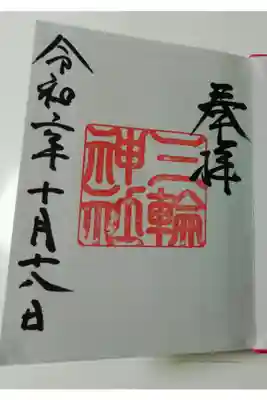 奉拝
三輪
神社
令和六年十月十八日